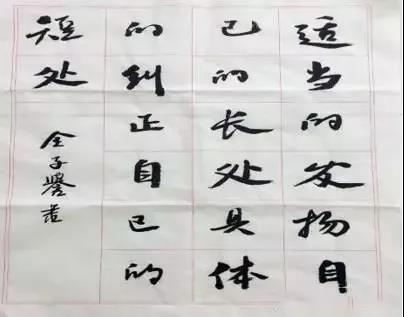 适当的发扬自
己的长处具体
的纠正自己的
短处
全子谨书